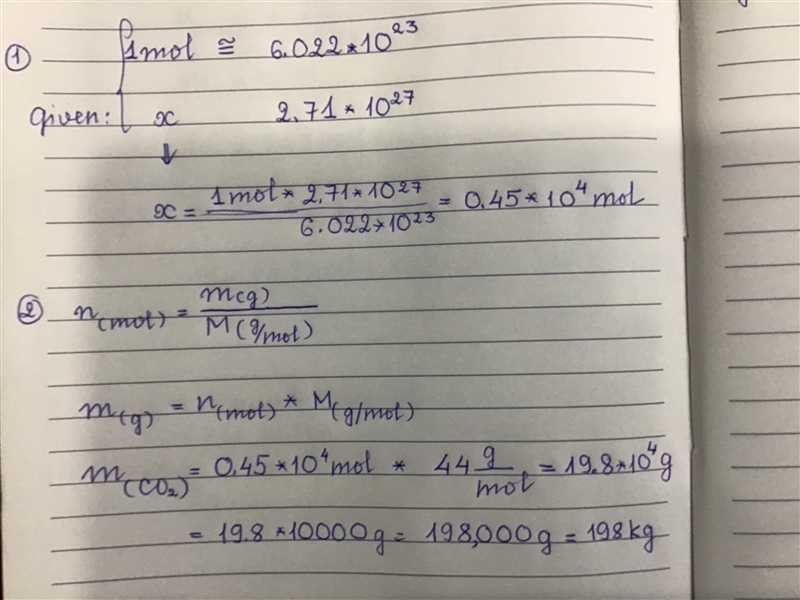 ① 1mol ≅ 6.022*10²³
given: x 2.71*10²⁷
↓
x = 1mol * 2.71*10²⁷ / 6.022*10²³ = 0.45*10⁴ mol
② n(mol) = m(g) / M(g/mol)
m(g) = n(mol) * M(g/mol)
m(CO₂) = 0.45*10⁴mol * 44 g/mol = 19.8*10⁴g
= 19.8*10000g = 198,000g = 198kg